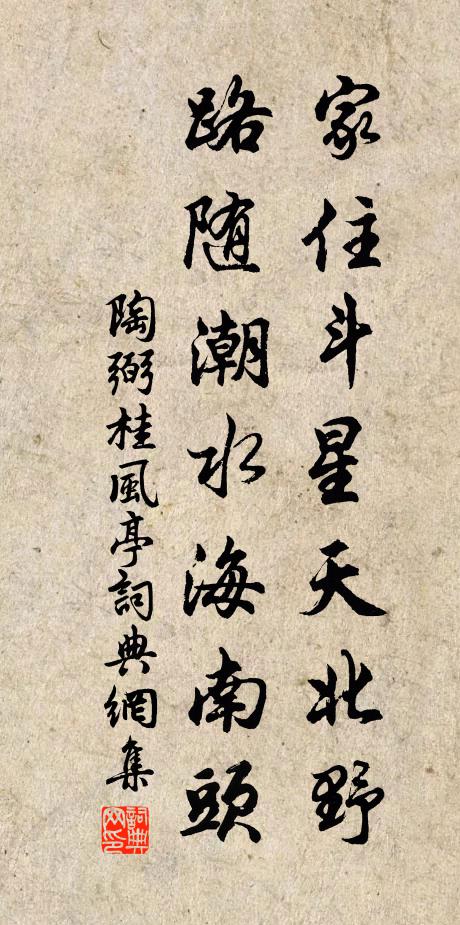 家住斗星天北野
路随潮水海南頭
陶弼桂風亭詞典網集
詞典网印